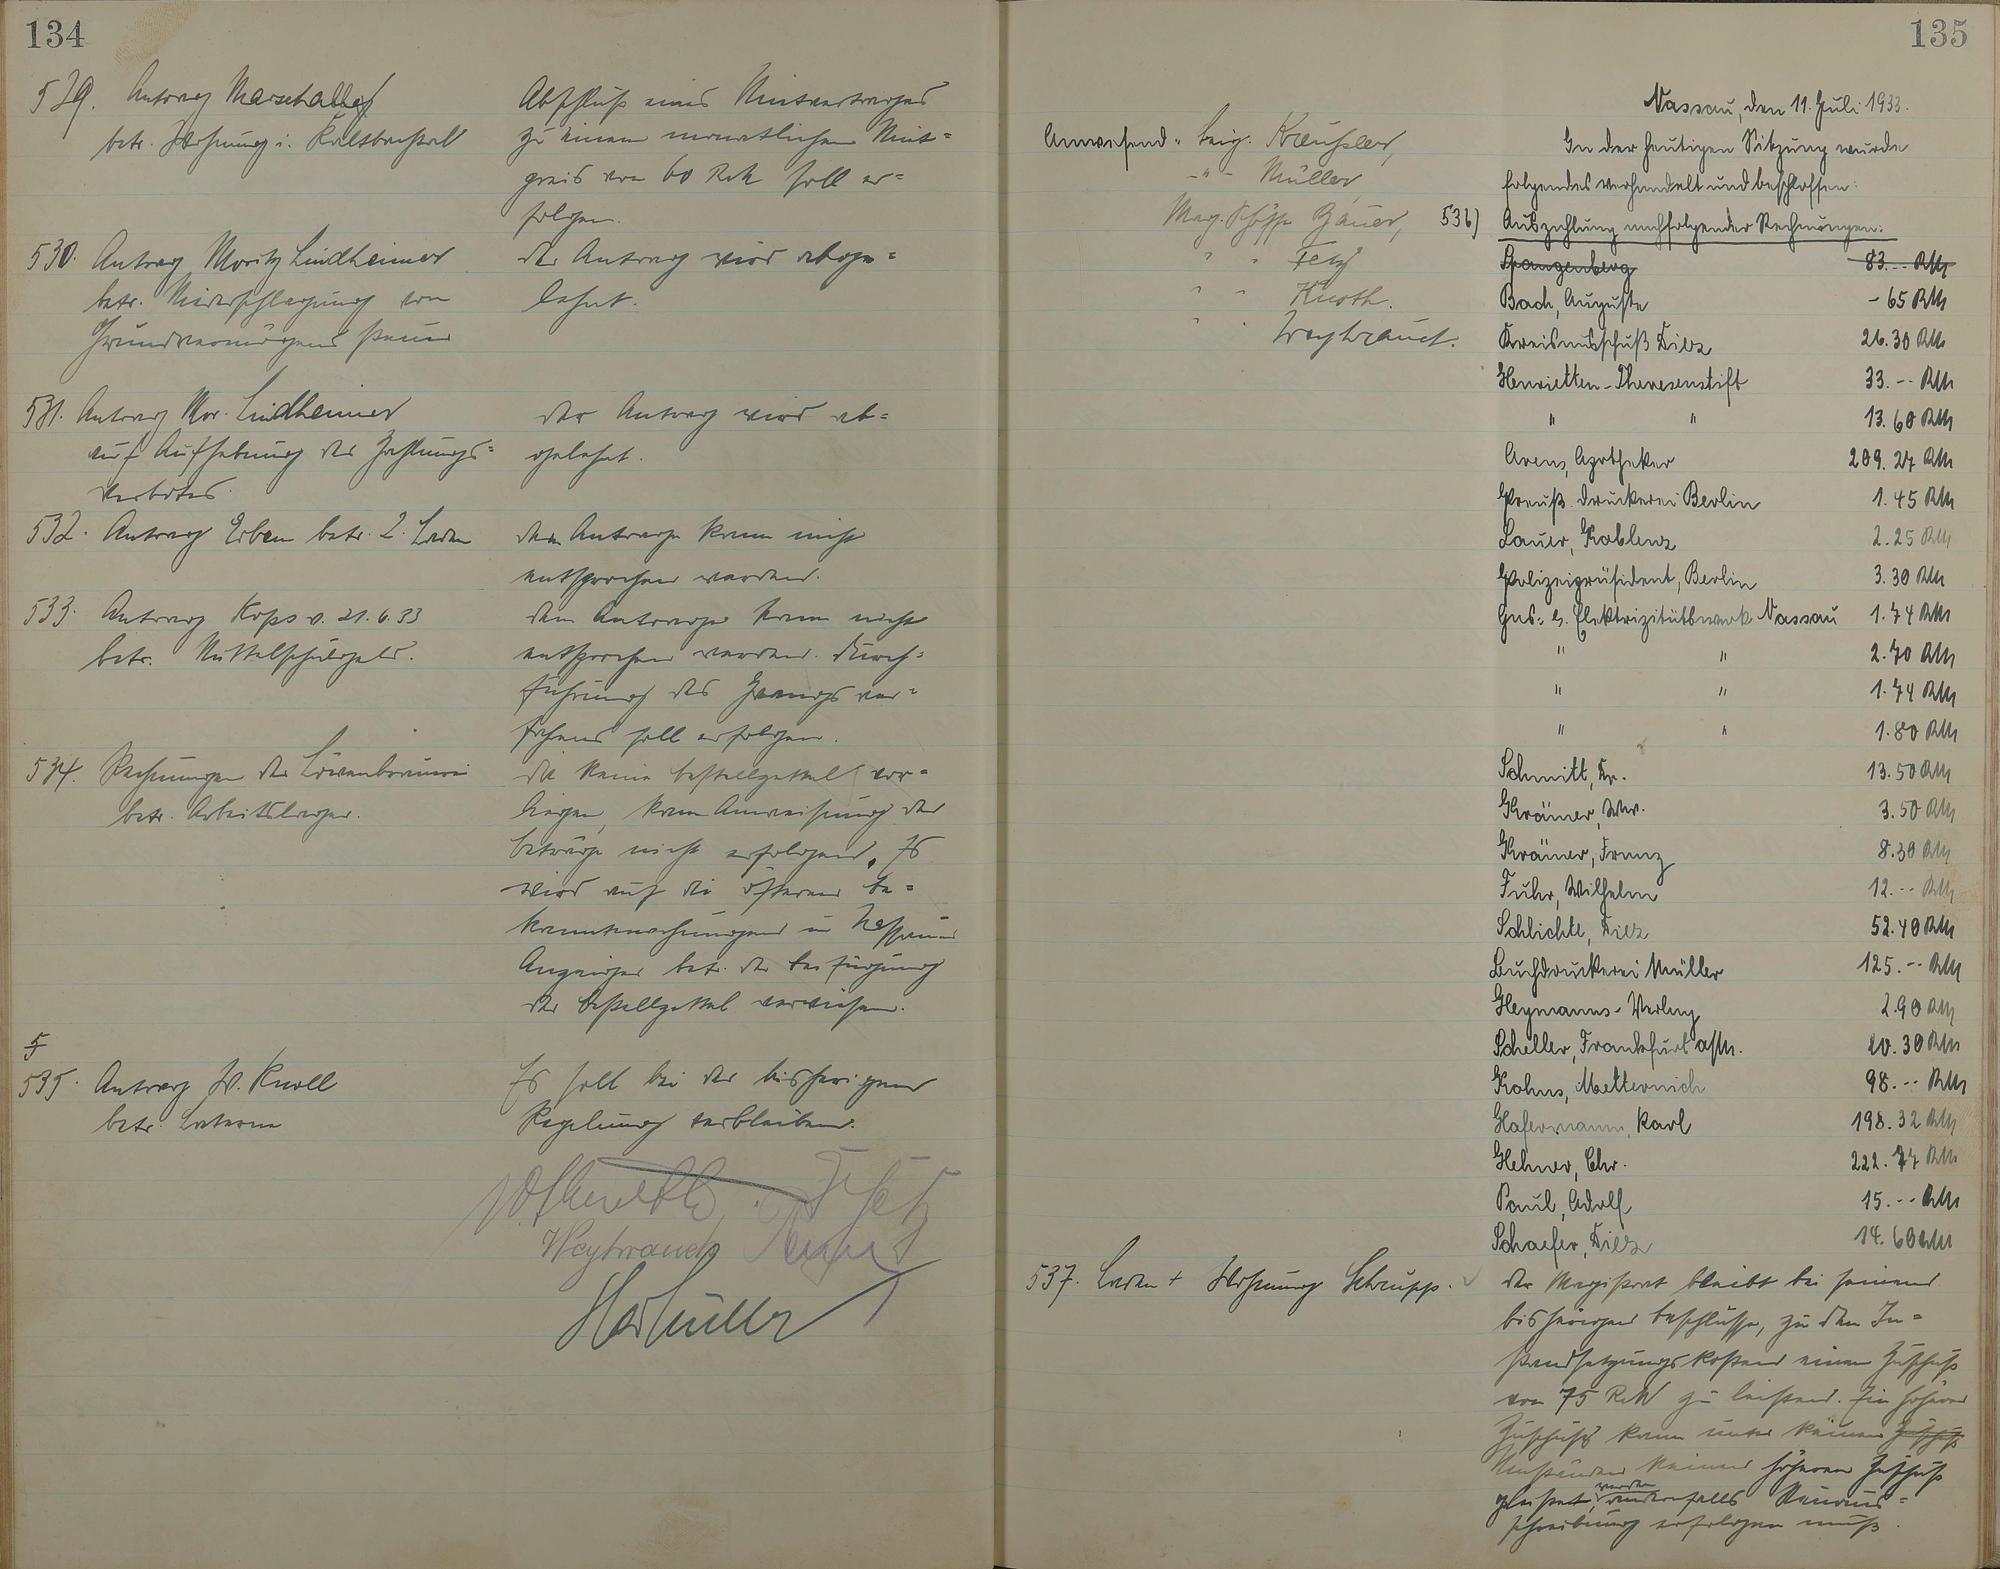 134
529. Antrag Marschall
betr. Wohnung i. Kaltbachtal
Abschluß eines Mietvertrages
zu einem monatlichen Miet=
preis von 60 RM soll er=
folgen.
530. Antrag Moritz Lindheimer
betr. Niederschlagung von
Grundvermögens steuer
der Antrag wird abge=
lehnt.
531. Antrag Mor. Lindheimer
auf Aufhebung des Zahlungs=
verbotes.
der Antrag wird ab=
gelehnt.
532. Antrag Erben betr. 2. Laden
dem Antrage kann nicht
entsprochen werden.
533. Antrag Kops v. 21.6.33
betr. Mittelschulgeld.
dem Antrage kann nicht
entsprochen werden. Durch=
führung des Zwangs ver=
fahrens soll erfolgen.
534. Rechnungen der Löwenbrauerei
betr. Arbeitslager.
da keine Bestellzettel vor=
liegen, kann Anweisung der
Beträge nicht erfolgen. Es
wird auf die öfteren Be=
kanntmachungen im Nassauer
Anzeiger betr. der Beifügung
der Bestellzettel verwiesen.
5
535. Antrag W. Knoll
betr. Laterne
Es soll bei der bisherigen
Regelung verbleiben.
Fetz
Weybrauch
Müller
135
Nassau, den 11. Juli 1933.
Anwesend: beig. Kreußler,
-"- Müller,
Mag. Schöffe Bauer,
" " Fetz
" " Knoth.
" " Weybrauch.
In der heutigen Sitzung wurde
folgendes verhandelt und beschlossen:
536) Auszahlung nachfolgender Rechnungen:
Spangenberg 83.-- RM
Bach, Auguste -65 RM
Kreisausschuß Diez 26.30 RM
Henrietten-Theresenstift 33.-- RM
" " 13.60 RM
Arens, Apotheker 209.27 RM
Preuß. Druckerei Berlin 1.45 RM
Lauer, Koblenz 2.25 RM
Polizeipräsident, Berlin 3.30 RM
Gas- u. Elektrizitätswerk Nassau 1.74 RM
" " 2.70 RM
" " 1.74 RM
" " 1.80 RM
Schmitt, Dr. 13.50 RM
Krämer, Ww. 3.50 RM
Krämer, Franz 8.30 RM
Fuhr, Wilhelm 12.-- RM
Schlichte, Diez 52.40 RM
Buchdruckerei Müller 125.-- RM
Heymanns-Verlag 2.90 RM
Scheller, Frankfurt a/M. 20.30 RM
Kohns, Metternich 98.-- RM
Hafermann, Karl 198.32 RM
Hehner, Chr. 222.77 RM
Paul, Adolf 15.-- RM
Schaefer, Diez 14.60 RM
537. Laden + Wohnung Schrupp.
der Magistrat bleibt bei seinem
bisherigen Beschlusse, zu den In=
standsetzungskosten einen Zuschuß
von 75 RM zu leisten. Ein höherer
Zuschuß kann unter keinen Zuschuß
Umständen keinen höheren Zuschuß
geleistet, werden
andernfalls Neuaus=
schreibung erfolgen muß.